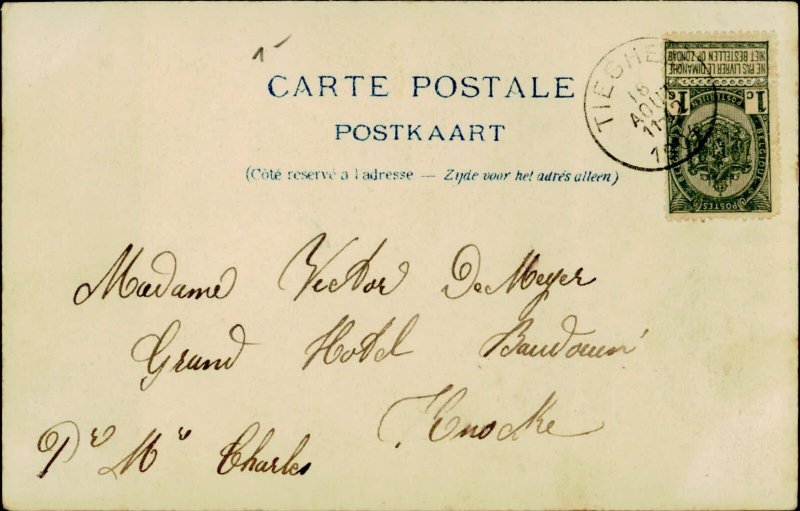 CARTE POSTALE
POSTKAART
(Côté reservé a l'adresse — Zijde voor het adrés alleen)
TIEGHE
16
AOUT
11-12
NE PAS LIVRER LE DIMANCHE
NIET BESTELLEN OP ZONDAG
1c 1c
BELGIQUE
POSTES
Madame Victor De Meyer
Grand Hotel Baudouin
Knocke
Charles